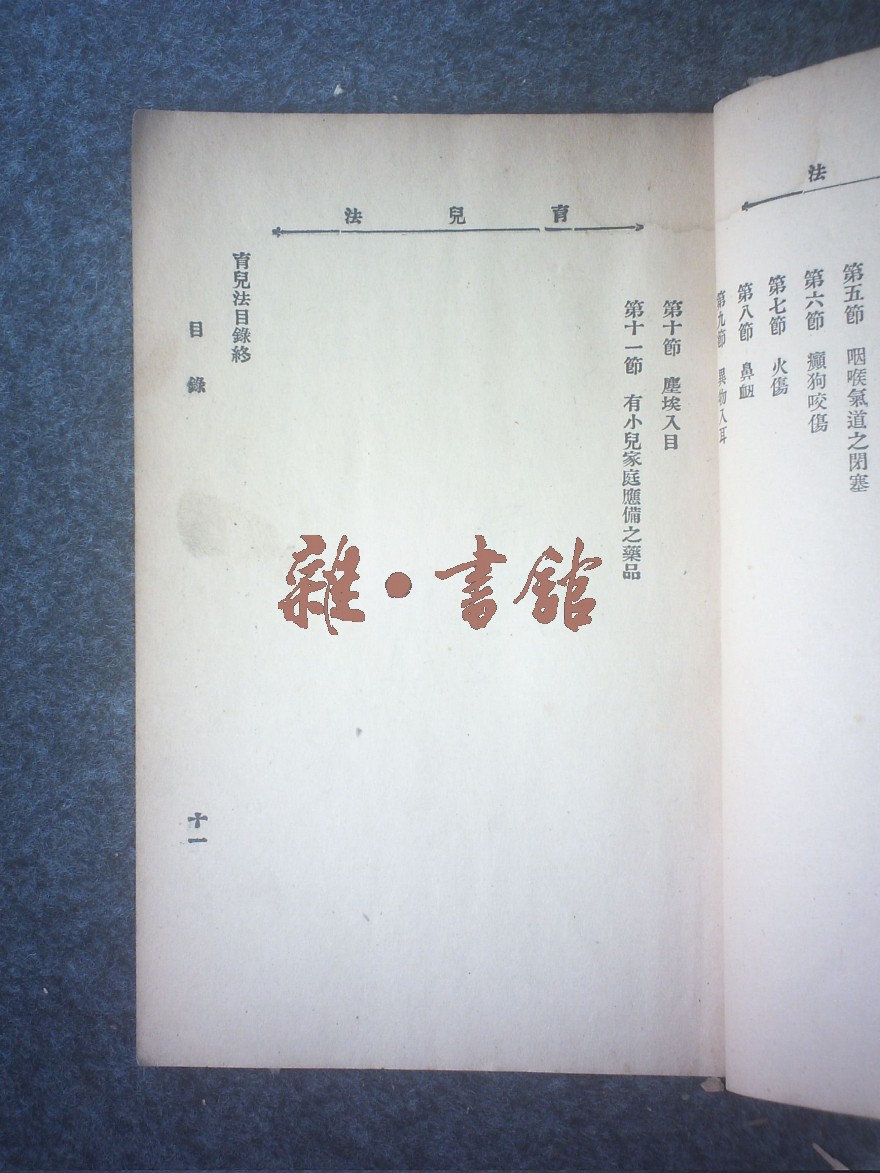 法
第五節　咽喉氣道之閉塞
第六節　癲狗咬傷
第七節　火傷
第八節　鼻衄
第九節　異物入耳
育兒法
第十節　塵埃入目
第十一節　有小兒家庭應備之藥品
育兒法目錄終
目錄
十一
雜·書館